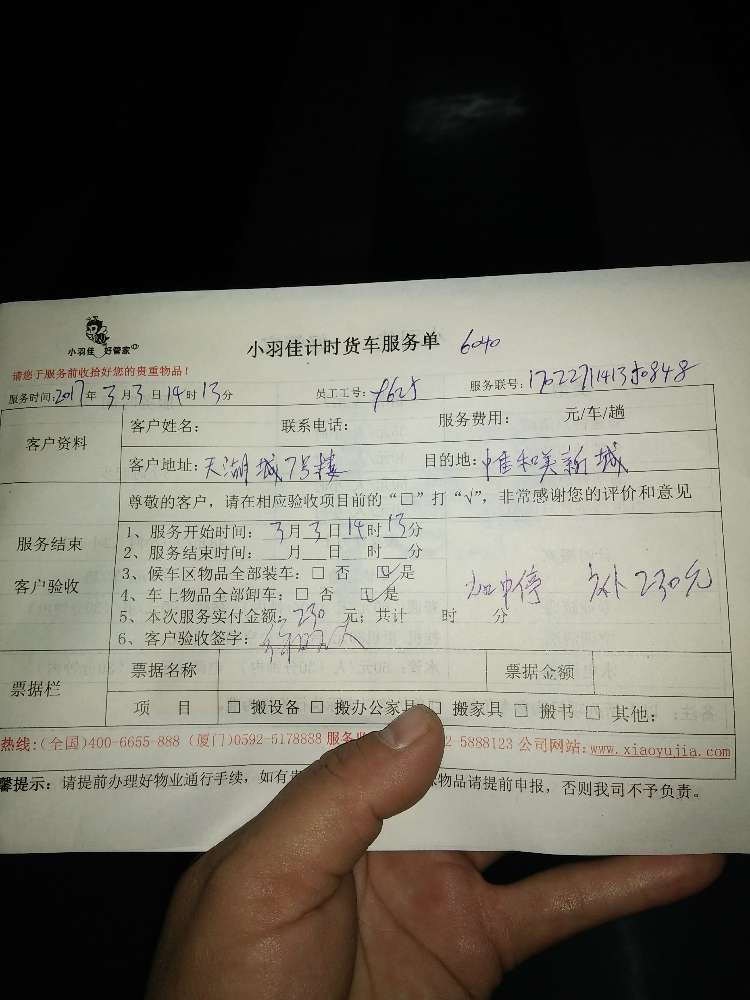 小羽佳 好管家
小羽佳计时货车服务单 6040
请您于服务前收拾好您的贵重物品!
服务时间:2017年3月3日14时13分 员工工号: 9625 服务联号:
客户资料 客户姓名: 联系电话: 服务费用: 元/车/趟
客户地址:天湖城7号楼 目的地:中佳和美新城
尊敬的客户,请在相应验收项目前的“□”打“√”,非常感谢您的评价和意见
服务结束 客户验收
1、服务开始时间: 3月3日14时13分
2、服务结束时间: 月 日 时 分
3、候车区物品全部装车:□ 否 ☑ 是
4、车上物品全部卸车:□ 否 ☑ 是
加中停 补230元
5、本次服务实付金额:230 元;共计 时 分
6、客户验收签字:
票据栏 票据名称 票据金额
项 目 □ 搬设备 □ 搬办公家具 □ 搬家具 □ 搬书 □ 其他:
热线:(全国)400-6655-888 (厦门)0592-5178888 服务 2-5888123 公司网站:www.xiaoyujia.com
馨提示:请提前办理好物业通行手续,如有 物品请提前申报,否则我司不予负责。